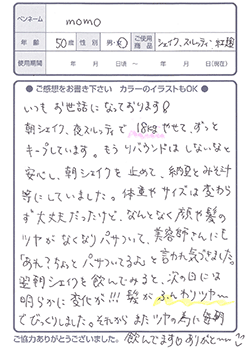 ペンネーム momo
年齢 50歳 性別 男・女 ご使用商品 シェイク、スルッティ、紅麹
使用期間 年 月 日ごろ 〜 年 月 日(現在)
●ご感想をお書き下さい カラーのイラストもOK●
いつもお世話になっております♡
朝シェイク、夜スルッティで18kgやせて、ずっと
キープしています。もうリバウンドはしないなと
安心し、朝シェイクを止めて、納豆とみそ汁
等にしていました。体重やサイズは変わら
ず大丈夫だったけど、なんとなく顔や髪の
ツヤがなくなりパサついて、美容師さんにも
「あれ?ちょっとパサついてるよ」と言われ気づきました。
翌朝シェイクを飲んでみると、次の日には
明らかに変化が!!!髪がふんわりツヤ〜
でびっくりしました。それからまたツヤの為に毎朝
ご協力ありがとうございました。飲んでます♡ありがと〜